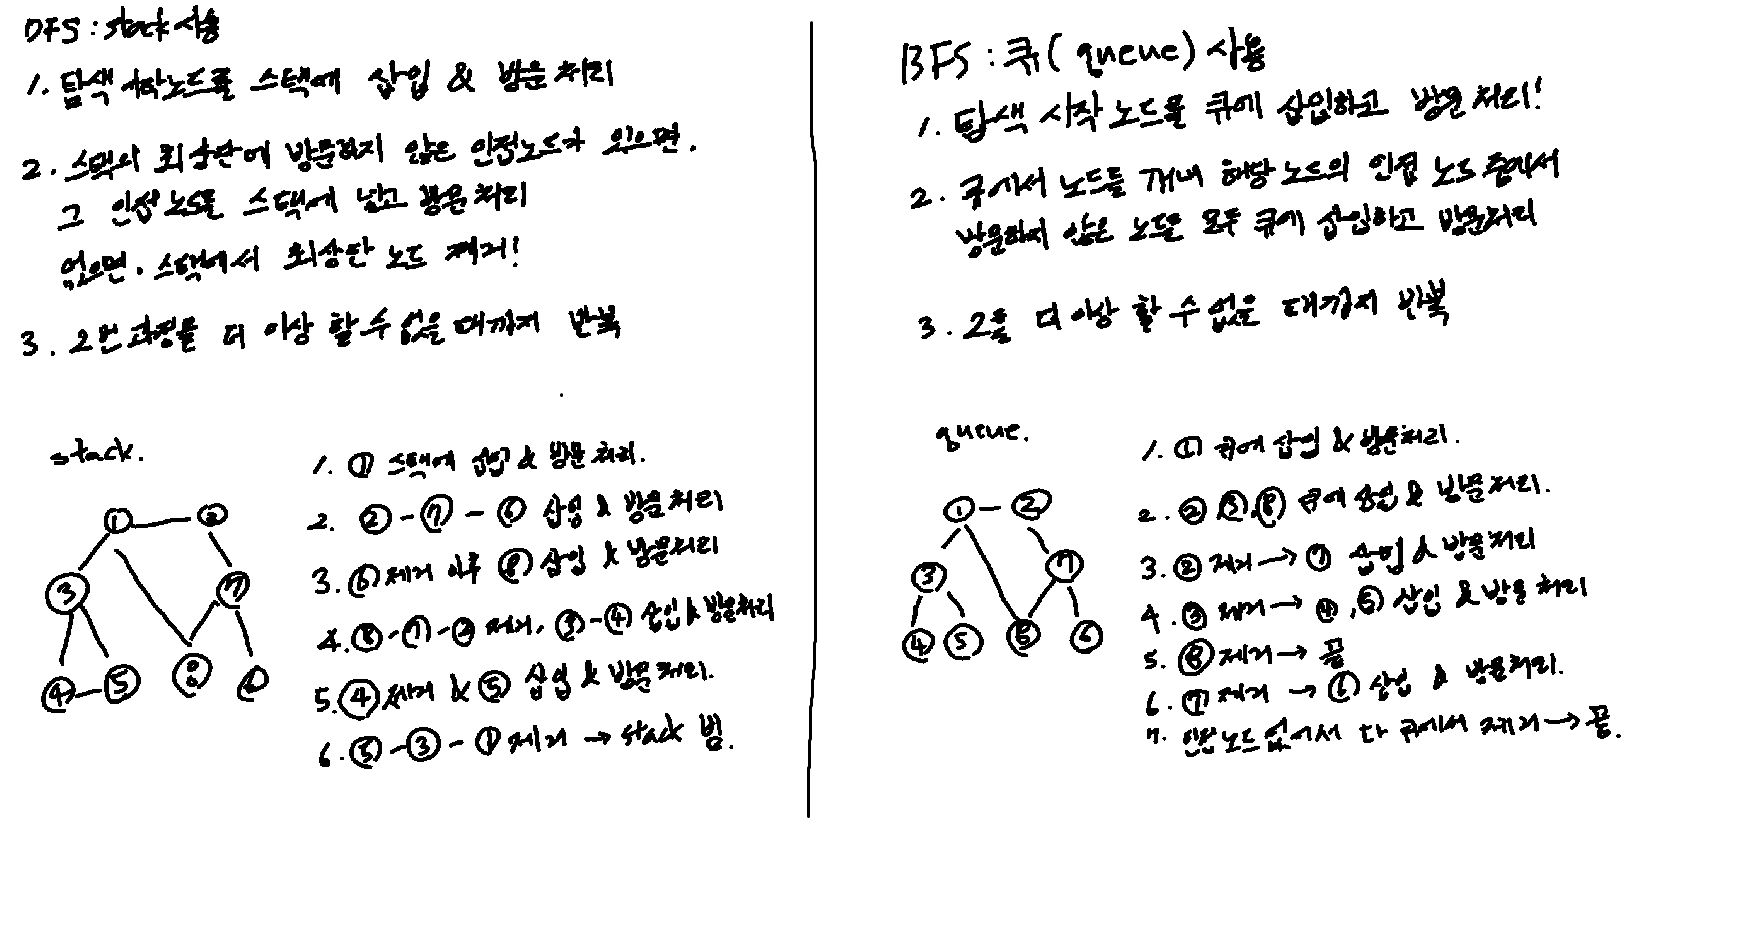 DFS : stack 사용
1. 탐색 시작노드를 스택에 삽입 & 방문처리
2. 스택의 최상단에 방문하지 않은 인접노드가 있으면.
그 인접노드를 스택에 넣고 방문처리
없으면. 스택에서 최상단 노드 제거!
3. 2번 과정을 더 이상 할 수 없을 때까지 반복
stack.
① ②
③ ⑦
④ ⑤ ⑧ ⑥
1. ① 스택에 삽입 & 방문처리.
2. ② - ⑦ - ⑥ 삽입 & 방문처리
3. ⑥ 제거 이후 ⑧ 삽입 & 방문처리
4. ⑧-⑦-② 제거. ③-④ 삽입 & 방문처리
5. ④ 제거 & ⑤ 삽입 & 방문처리.
6. ⑤-③-① 제거 → stack 빔.
BFS : 큐( queue) 사용
1. 탐색 시작 노드를 큐에 삽입하고 방문처리!
2. 큐에서 노드를 꺼내 해당 노드의 인접 노드 중에서
방문하지 않은 노드를 모두 큐에 삽입하고 방문처리
3. 2를 더 이상 할 수 없을 때까지 반복
queue.
① ②
③ ⑦
④ ⑤ ⑧ ⑥
1. ① 큐에 삽입 & 방문처리.
2. ②,③,⑧ 큐에 삽입 & 방문처리.
3. ② 제거 → ⑦ 삽입 & 방문처리
4. ③ 제거 → ④,⑤ 삽입 & 방문처리
5. ⑧ 제거 → 끝
6. ⑦ 제거 → ⑥ 삽입 & 방문처리.
7. 인접노드 없어서 다 큐에서 제거 → 끝.